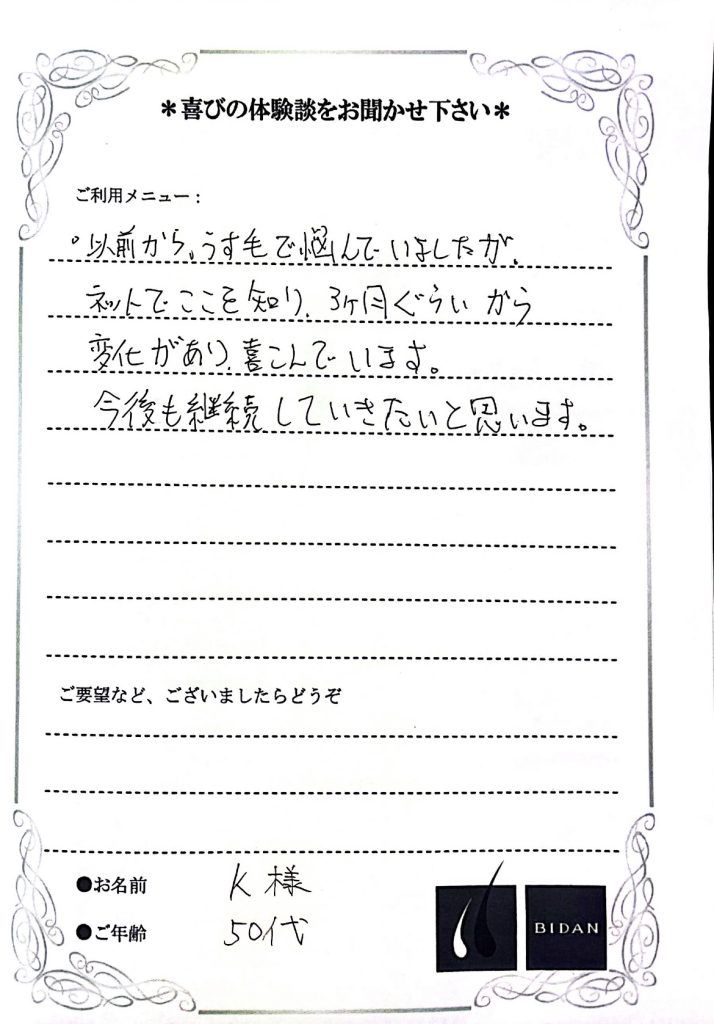 ＊喜びの体験談をお聞かせ下さい＊
ご利用メニュー：
。以前から、うす毛で悩んでいましたが、
ネットでここを知り、3ヶ月ぐらいから
変化があり、喜こんでいます。
今後も継続していきたいと思います。
ご要望など、ございましたらどうぞ
●お名前 K 様
●ご年齢 50代
BIDAN